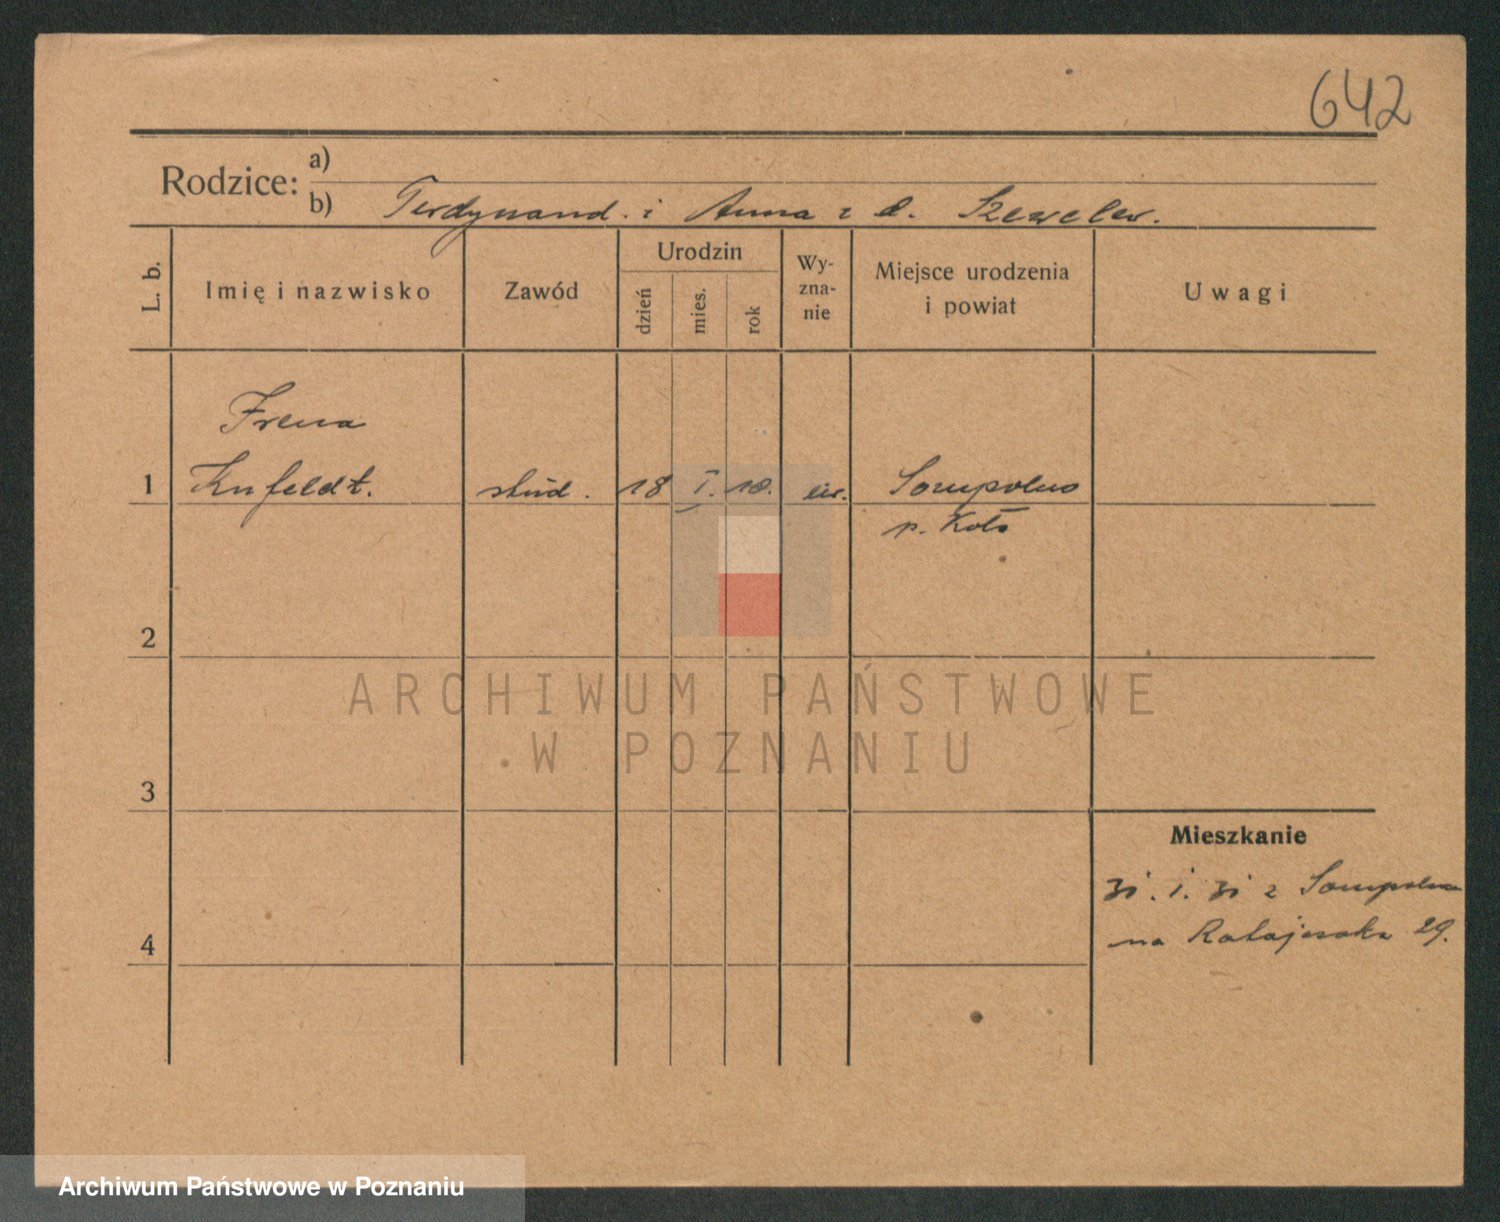 642
Rodzice: a)
b) Ferdynand i Anna z d.
L. b.
Imię i nazwisko
Zawód
Urodzin
dzień
mies.
rok
Wy-
zna-
nie
Miejsce urodzenia
i powiat
Uwagi
Irena
1 Knfeldt. stud. 18 I. 10. ew. Sompolno
p. Koło
2
ARCHIWUM PAŃSTWOWE
W POZNANIU
3
Mieszkanie
31. 1. 31 z Sompolna
4
na Ratajczaka 29.
Archiwum Państwowe w Poznaniu